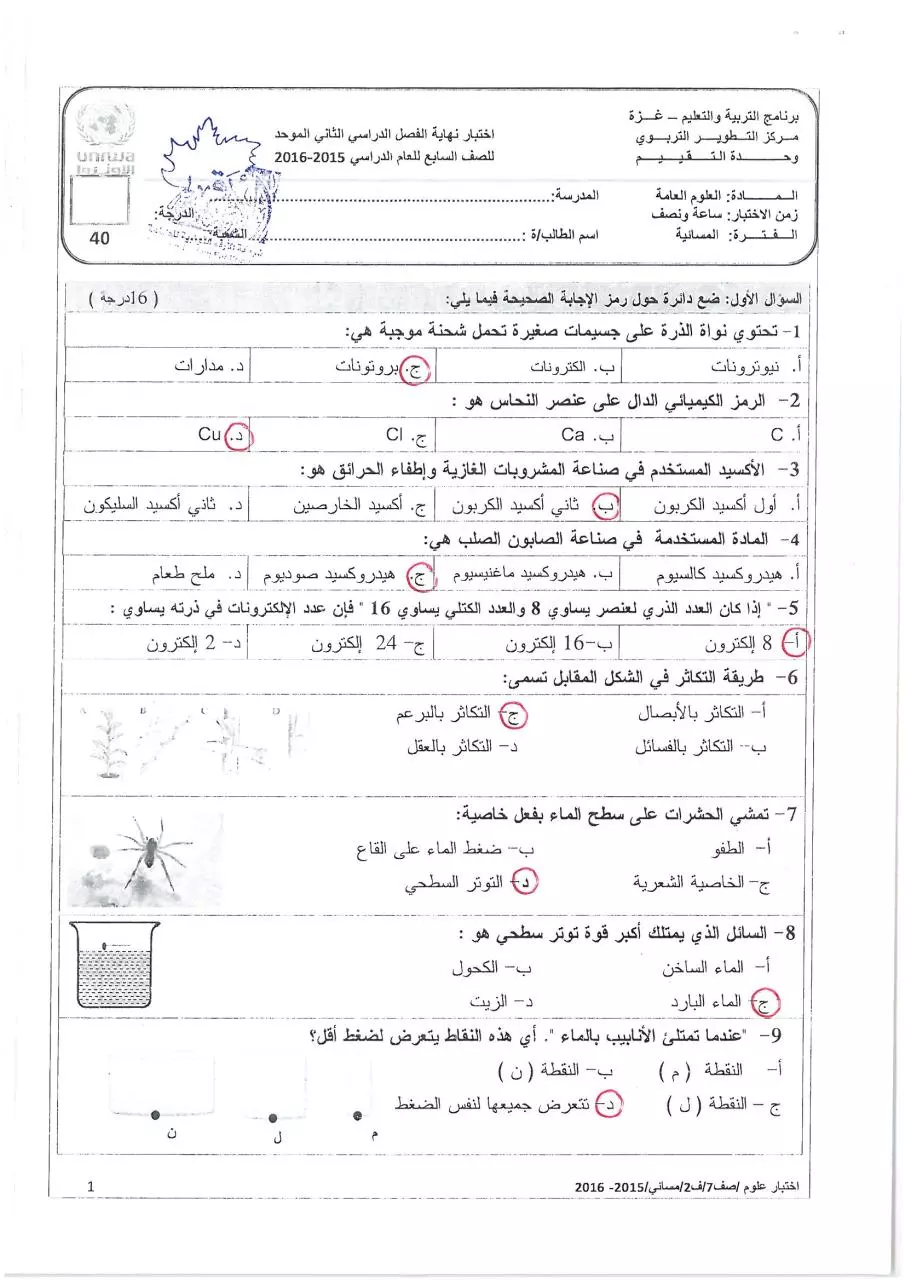 برنامج التربية والتعليم – غـــزة
مركز التطوير التربوي
وحـــدة التـقـيـيـم
اختبار نهاية الفصل الدراسي الثاني الموحد
للصف السابع للعام الدراسي 2015-2016
unrwa
الأونروا
المــــادة: العلوم العامة
زمن الاختبار: ساعة ونصف
الفـتـرة: المسائية
المدرسة:
اسم الطالب/ة :
الشعبة
الدرجة:
40
السؤال الأول: ضع دائرة حول رمز الإجابة الصحيحة فيما يلي: ( 16درجة )
1- تحتوي نواة الذرة على جسيمات صغيرة تحمل شحنة موجبة هي:
أ. نيوترونات ب. الكترونات ج. بروتونات د. مدارات
2- الرمز الكيميائي الدال على عنصر النحاس هو :
أ. C ب. Ca ج. Cl د. Cu
3- الأكسيد المستخدم في صناعة المشروبات الغازية وإطفاء الحرائق هو:
أ. أول أكسيد الكربون ب. ثاني أكسيد الكربون ج. أكسيد الخارصين د. ثاني أكسيد السليكون
4- المادة المستخدمة في صناعة الصابون الصلب هي:
أ. هيدروكسيد كالسيوم ب. هيدروكسيد ماغنيسيوم ج. هيدروكسيد صوديوم د. ملح طعام
5- " إذا كان العدد الذري لعنصر يساوي 8 والعدد الكتلي يساوي 16 " فإن عدد الإلكترونات في ذرته يساوي :
أ- 8 إلكترون ب- 16 إلكترون ج- 24 إلكترون د- 2 إلكترون
6- طريقة التكاثر في الشكل المقابل تسمى:
أ- التكاثر بالأبصال ج- التكاثر بالبرعم
ب- التكاثر بالفسائل د- التكاثر بالعقل
A B C D
7- تمشي الحشرات على سطح الماء بفعل خاصية:
أ- الطفو ب- ضغط الماء على القاع
ج- الخاصية الشعرية د- التوتر السطحي
8- السائل الذي يمتلك أكبر قوة توتر سطحي هو :
أ- الماء الساخن ب- الكحول
ج- الماء البارد د- الزيت
9- "عندما تمتلئ الأنابيب بالماء ". أي هذه النقاط يتعرض لضغط أقل؟
أ- النقطة ( م ) ب- النقطة ( ن )
ج - النقطة ( ل ) د- تتعرض جميعها لنفس الضغط
م ل ن
اختبار علوم /صف7/ف2/مسائي/2015- 2016
1